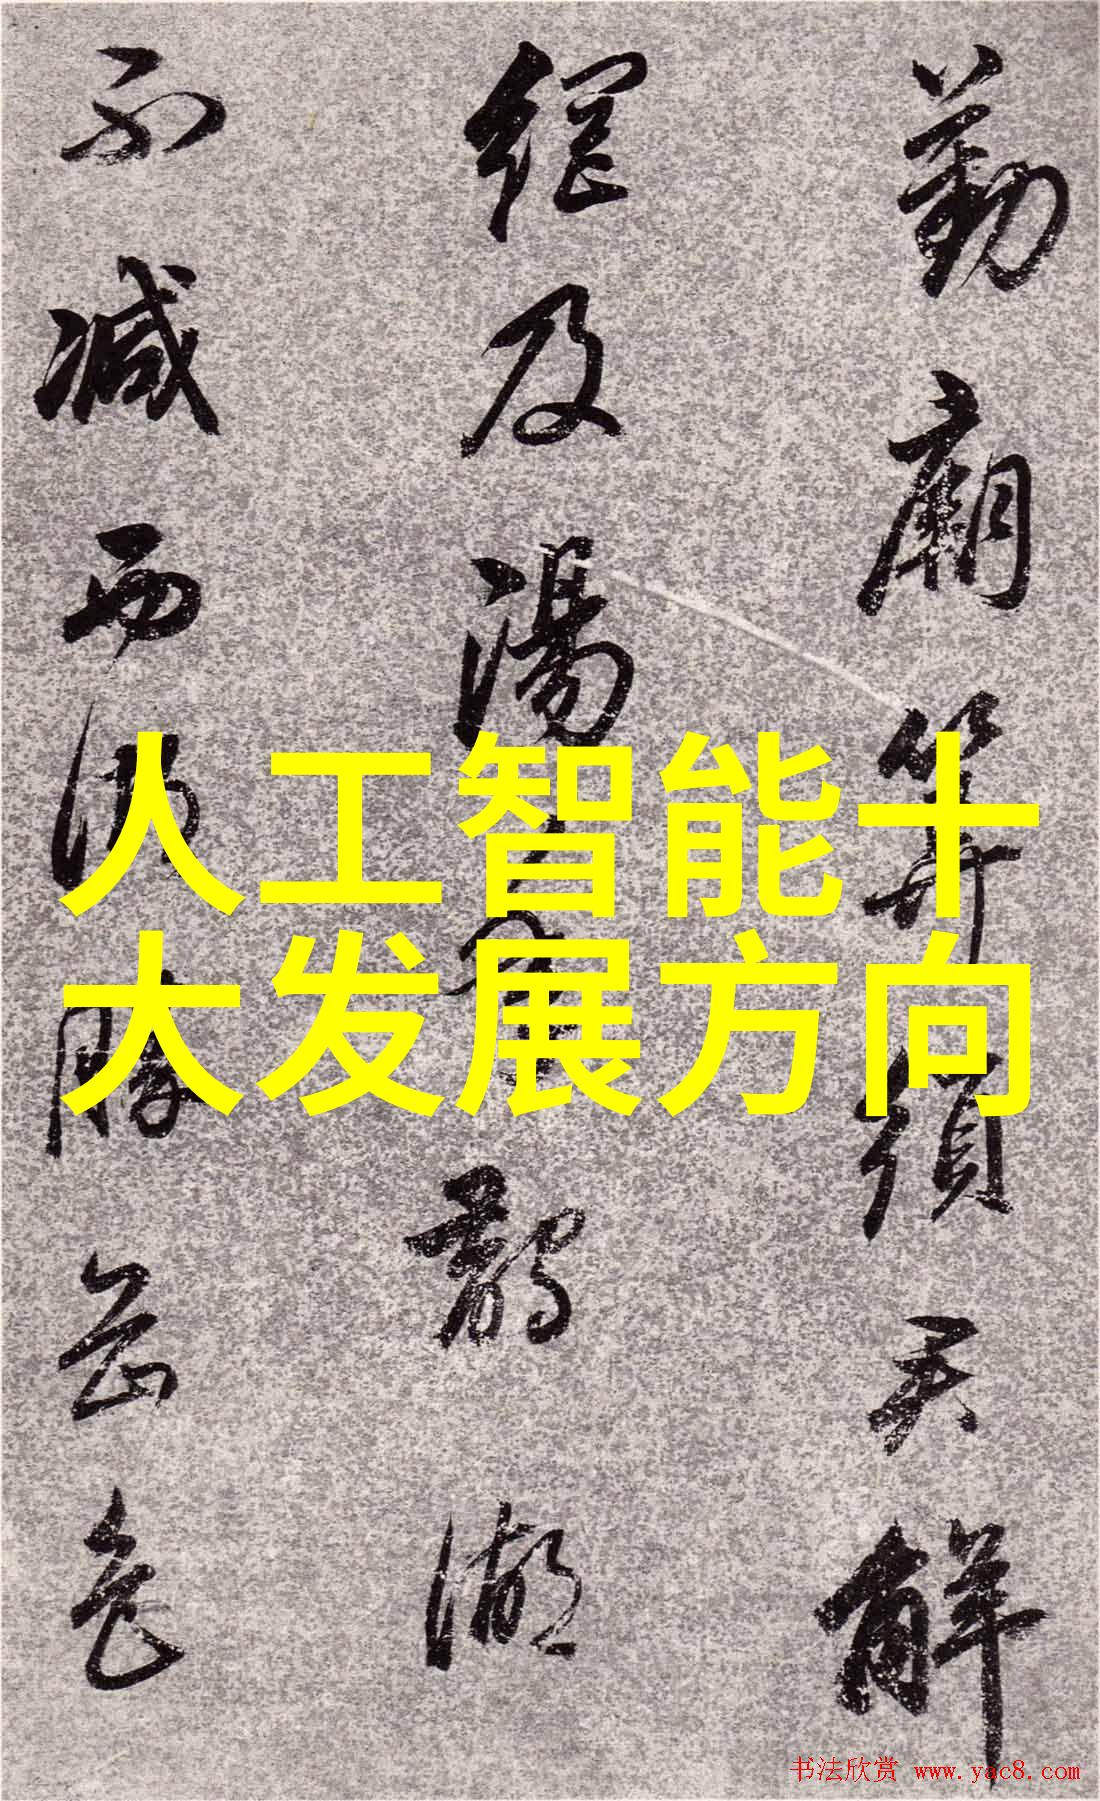 勤廟筭須君解
網及湯年鵝湖
不減西湖勝
人工智能十
大发展方向
书法欣赏 www.yac8.com